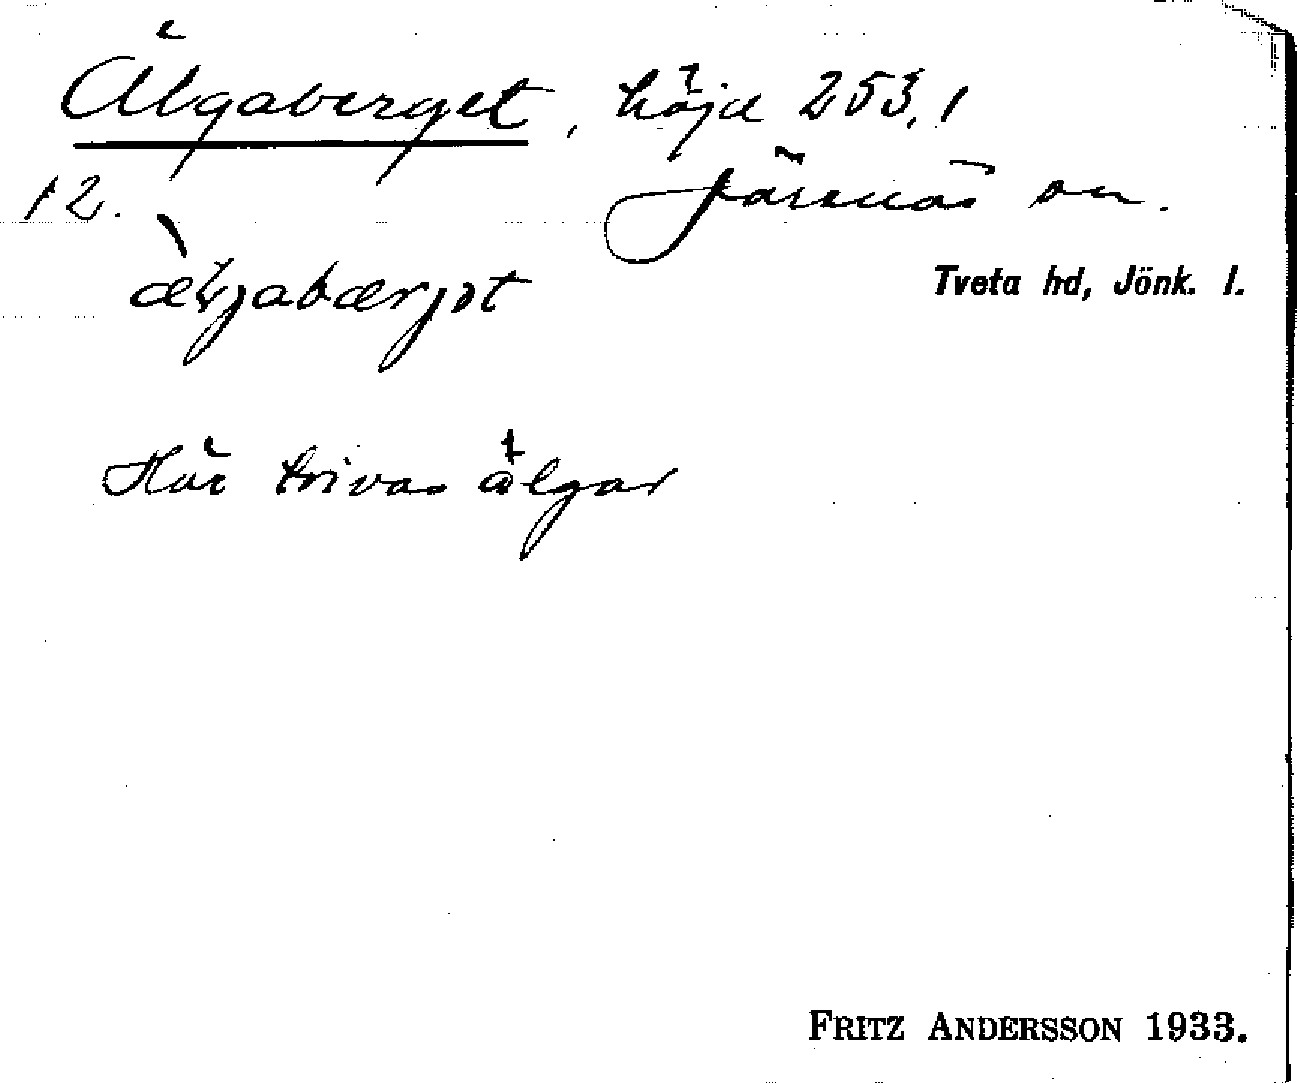 Älgaberget, höjd 253,1
12. Järsnäs sn.
Tveta hd, Jönk. l.
æljabærjət
Här trivas älgar
FRITZ ANDERSSON 1933.